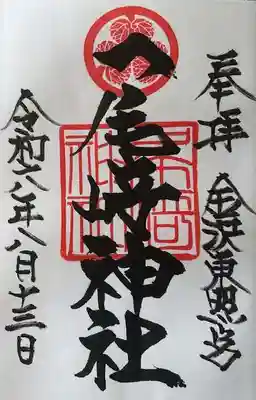 奉拝
金沢東照宮
尾崎神社
令和六年八月十三日